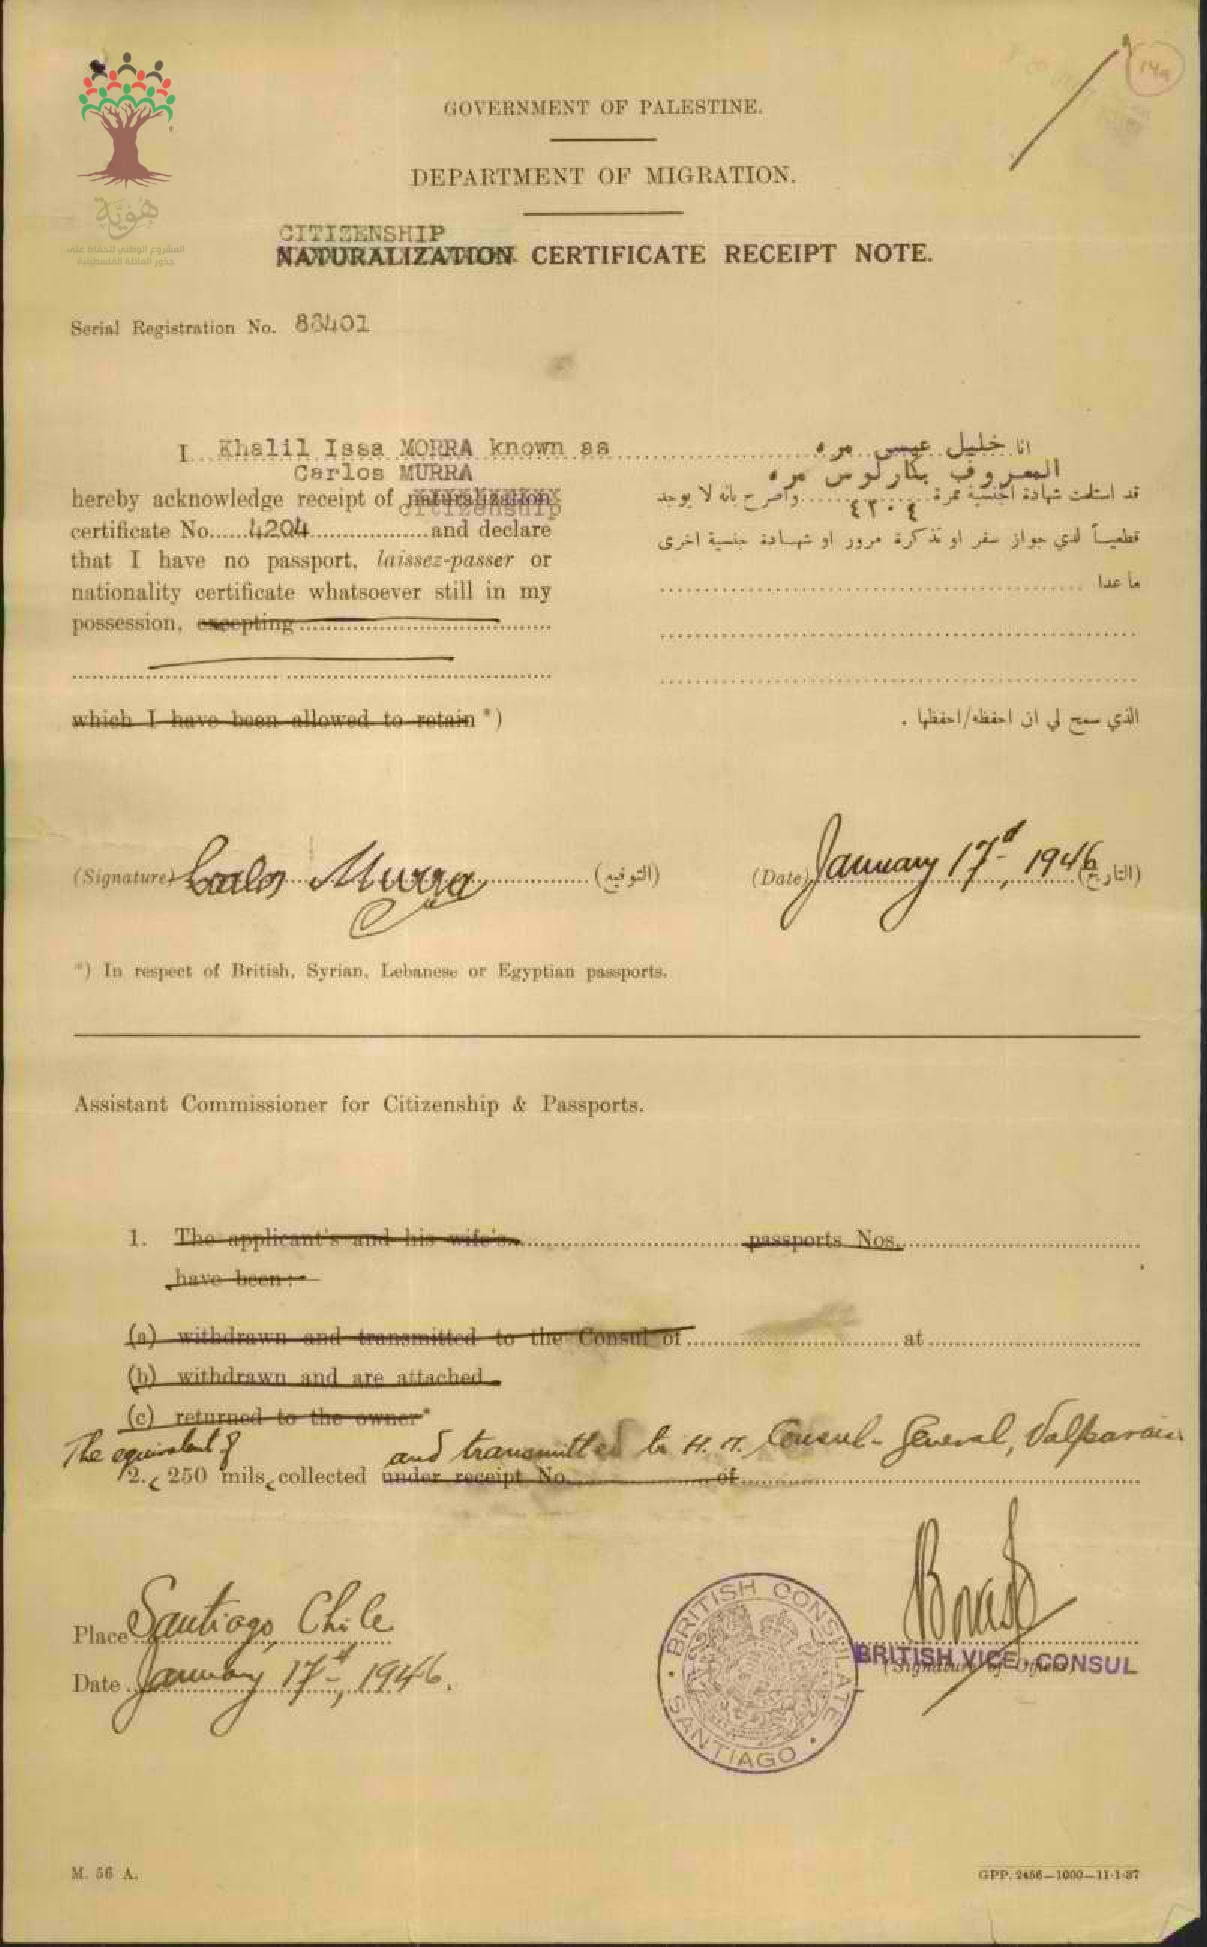 14a
هُوِيَّة
المشروع الوطني للحفاظ على
جذور العائلة الفلسطينية
GOVERNMENT OF PALESTINE.
DEPARTMENT OF MIGRATION.
CITIZENSHIP
NATURALIZATION CERTIFICATE RECEIPT NOTE.
Serial Registration No. 88401
I Khalil Issa MORRA known as
Carlos MURRA
hereby acknowledge receipt of naturalization
citizenship
certificate No. 4204 and declare
that I have no passport, laissez-passer or
nationality certificate whatsoever still in my
possession, excepting
which I have been allowed to retain *)
انا خليل عيسى مره
المعروف بكارلوس مره
قد استلمت شهادة اجنسية نمرة ٤٢٠٤ واصرح بانه لا يوجد
قطعياً لدي جواز سفر او تذكرة مرور او شهادة جنسية اخرى
ما عدا
الذي سمح لي ان احفظه/احفظها .
(Signature) Carlos Murra (التوقيع)
(Date) January 17th, 1946 (التاريخ)
*) In respect of British, Syrian, Lebanese or Egyptian passports.
Assistant Commissioner for Citizenship & Passports.
1. The applicant's and his wife's passports Nos.
have been:-
(a) withdrawn and transmitted to the Consul of at
(b) withdrawn and are attached
(c) returned to the owner*
The equivalent of and transmitted to H.M. Consul-General, Valparaiso
2. 250 mils collected under receipt No. of
Place Santiago, Chile
Date January 17th, 1946.
BRITISH CONSULATE
SANTIAGO
BRITISH VICE-CONSUL
(Signature of Officer)
M. 56 A.
GPP. 2456—1000—11-1-37